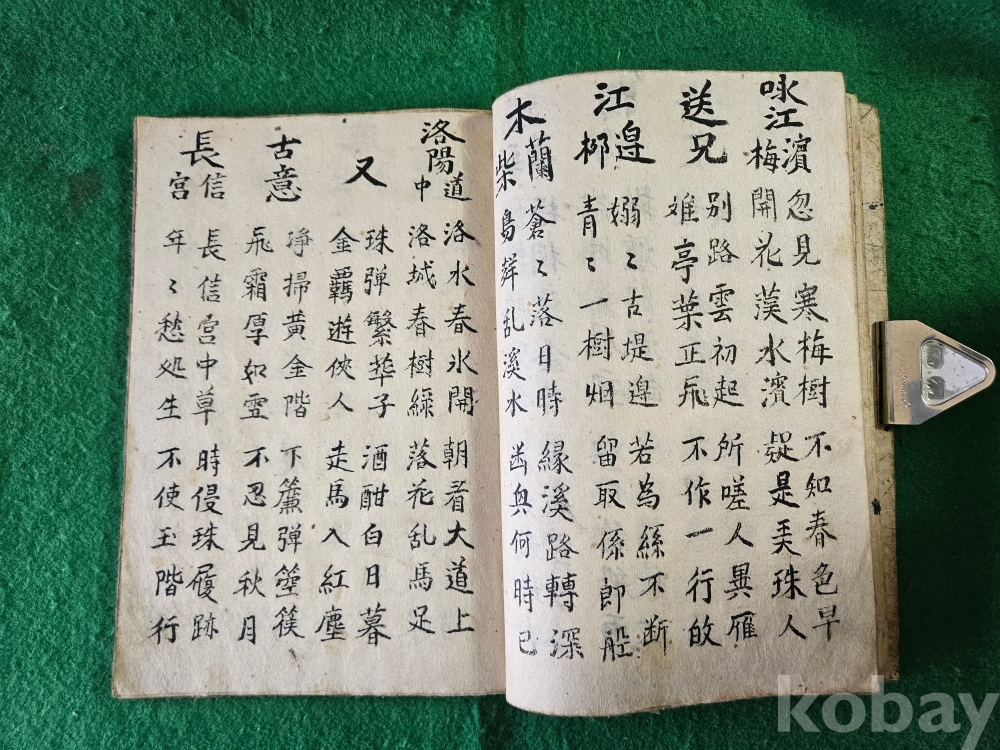 咏江濱梅
忽見寒梅樹 不知春色早
開花漢水濱 疑是美珠人
送兄
別路雲初起 所嗟人異雁
难亭葉正飛 不作一行敀
江邊柳
嫋〻古堤邊 若為絲不断
青〻一樹烟 留取係郎船
木蘭柴
蒼〻落日時 緣溪路轉深
鳥聲乱溪水 幽興何時已
洛陽道中
洛水春氷開 朝看大道上
洛城春樹綠 落花乱馬足
又
珠弹繁華子 酒酣白日暮
金羈遊俠人 走馬入紅塵
古意
净掃黃金階 下簾弹箜篌
飛霜厚如雪 不忍見秋月
長信宮
長信宮中草 時侵珠履跡
年〻愁処生 不使玉階行
kobay